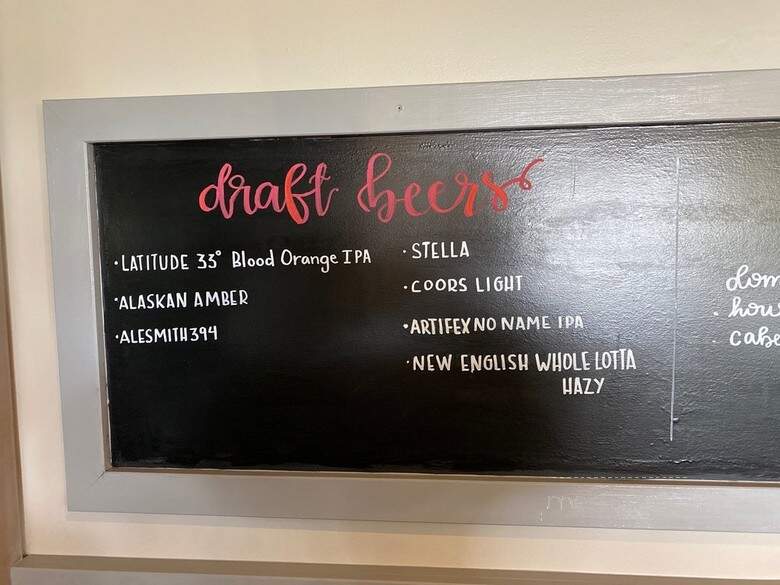 draft beers
·LATITUDE 33° Blood Orange IPA
·ALASKAN AMBER
·ALESMITH 394
·STELLA
·COORS LIGHT
·ARTIFEX NO NAME IPA
·NEW ENGLISH WHOLE LOTTA
HAZY